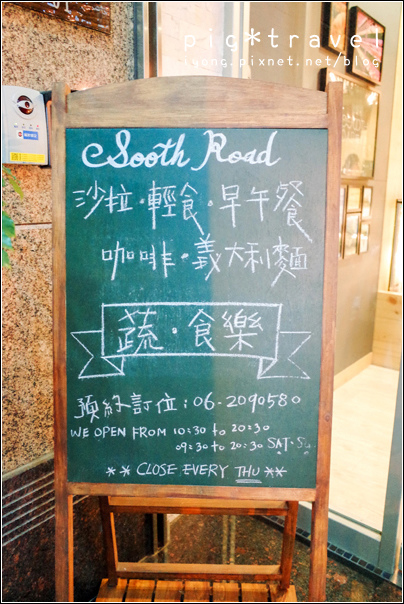 pig*travel
iyong.pixnet.net/blog
Sooth Road
沙拉·輕食·早午餐
咖啡·義大利麵
蔬·食樂
預約訂位:06-2090580
WE OPEN FROM 10:30 to 20:30
09:30 to 20:30 SAT.SU
** CLOSE EVERY THU **